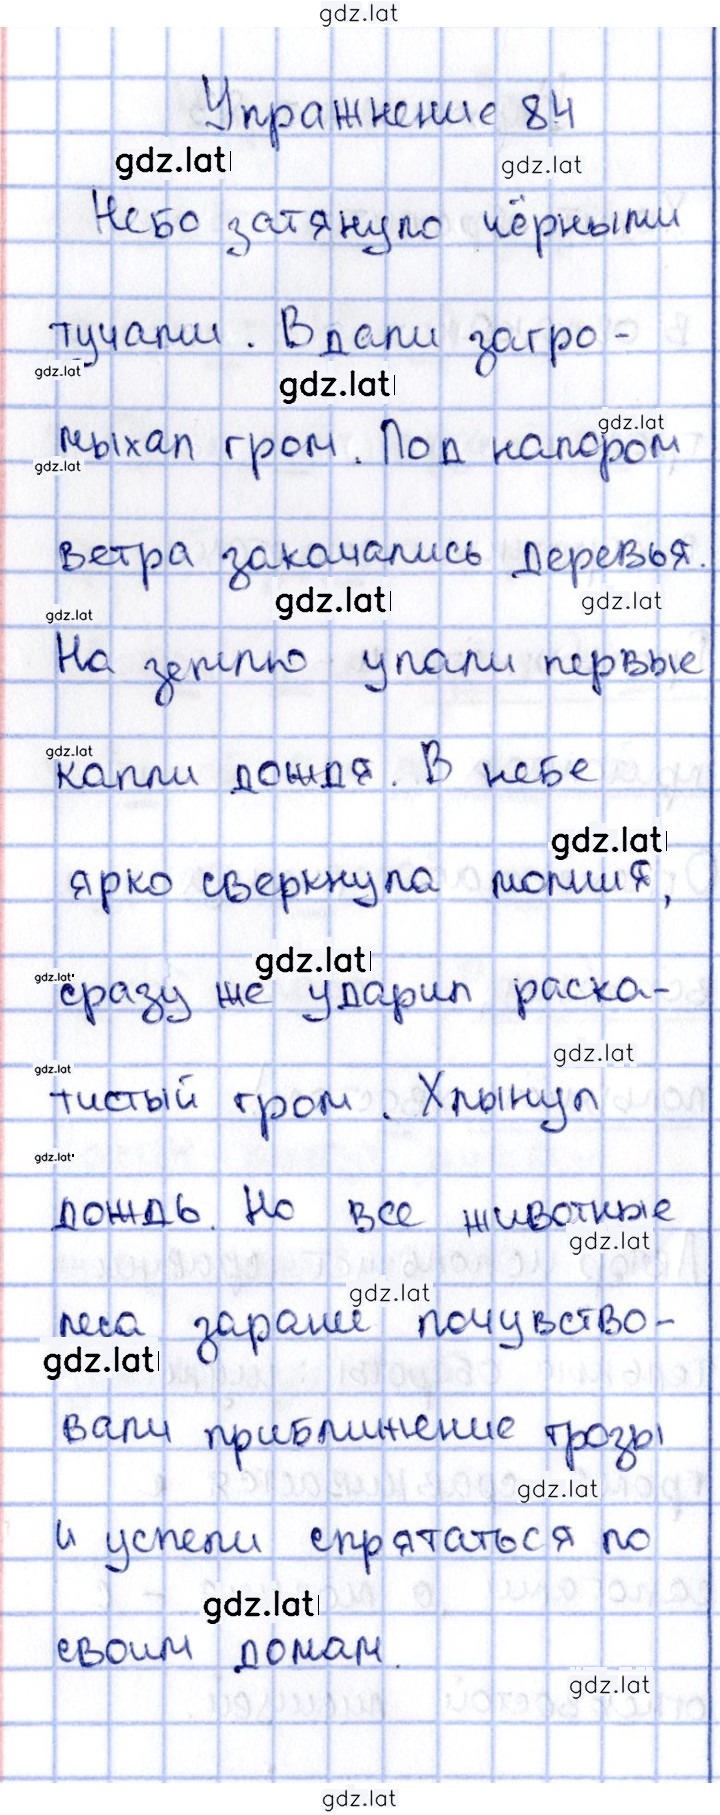 gdz.lat
Упражнение 84
gdz.lat gdz.lat
Небо затянуло чёрными
тучами. Вдали загро-
gdz.lat gdz.lat
gdz.lat
мыхал гром. Под напором
gdz.lat
ветра закачались деревья.
gdz.lat gdz.lat gdz.lat
На землю упали первые
gdz.lat
капли дождя. В небе
gdz.lat
ярко сверкнула молния,
gdz.lat gdz.lat
сразу же ударил раска-
gdz.lat gdz.lat
тистый гром. Хлынул
gdz.lat
дождь. Но все животные
gdz.lat
gdz.lat
леса заранее почувство-
gdz.lat
вали приближение грозы
gdz.lat
и успели спрятаться по
gdz.lat
своим домам.
gdz.lat
gdz.lat